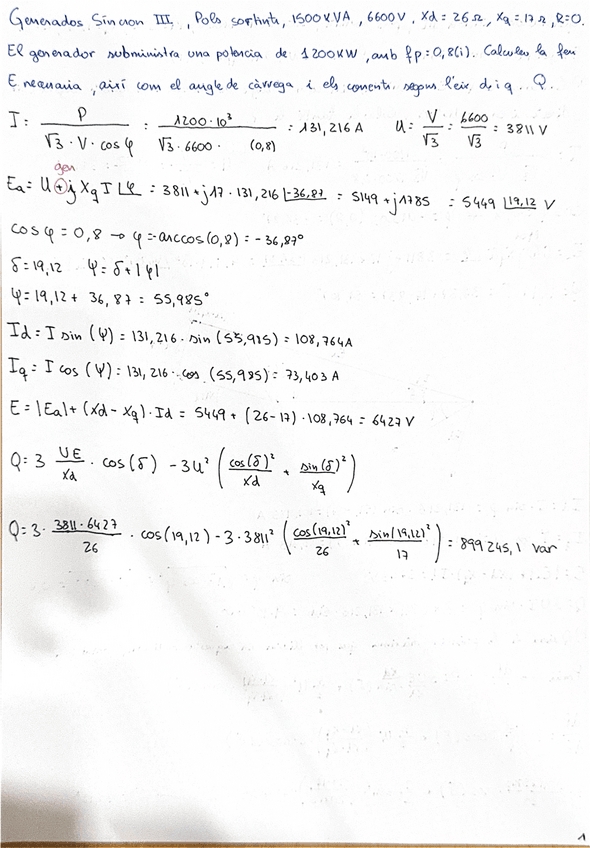 Generados Sincron III, Pols sortints, 1500KVA, 6600V, Xd = 26Ω, Xq = 17Ω, R=0.
El generador subministra una potencia de 1200KW, amb fp = 0,8(i). Calculeu la fem
E necesaria, així com el angle de càrrega i els corrents segons l'eix d i q. Q.
I = P / (√3 · V · cos φ) = 1200·10³ / (√3 · 6600 · (0,8)) = 131,216 A    U = V/√3 = 6600/√3 = 3811 V
gen
Ea = U + j Xq I ∠φ = 3811 + j17 · 131,216 ∠-36,87 = 5149 + j1785 = 5449 ∠19,12 V
cos φ = 0,8 → φ = arccos(0,8) = -36,87°
δ = 19,12   Ψ = δ + |φ|
Ψ = 19,12 + 36,87 = 55,985°
Id = I sin (Ψ) = 131,216 · sin (55,985) = 108,764A
Iq = I cos (Ψ) = 131,216 · cos (55,985) = 73,403 A
E = |Ea| + (Xd - Xq) · Id = 5449 + (26-17) · 108,764 = 6427 V
Q = 3 UE/Xd · cos(δ) - 3U² (cos(δ)²/Xd + sin(δ)²/Xq)
Q = 3 · 3811·6427/26 · cos(19,12) - 3·3811² (cos(19,12)²/26 + sin(19,12)²/17) = 899245,1 var
1